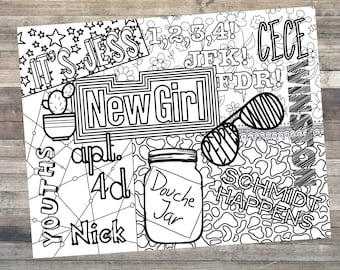 IT'S JESS!
1,2,3,4!
JFK!
FDR!
CECE
WINSTON
New Girl
YOUTHS
apt.
4d
Nick
Douche
Jar
SCHMIDT
HAPPENS